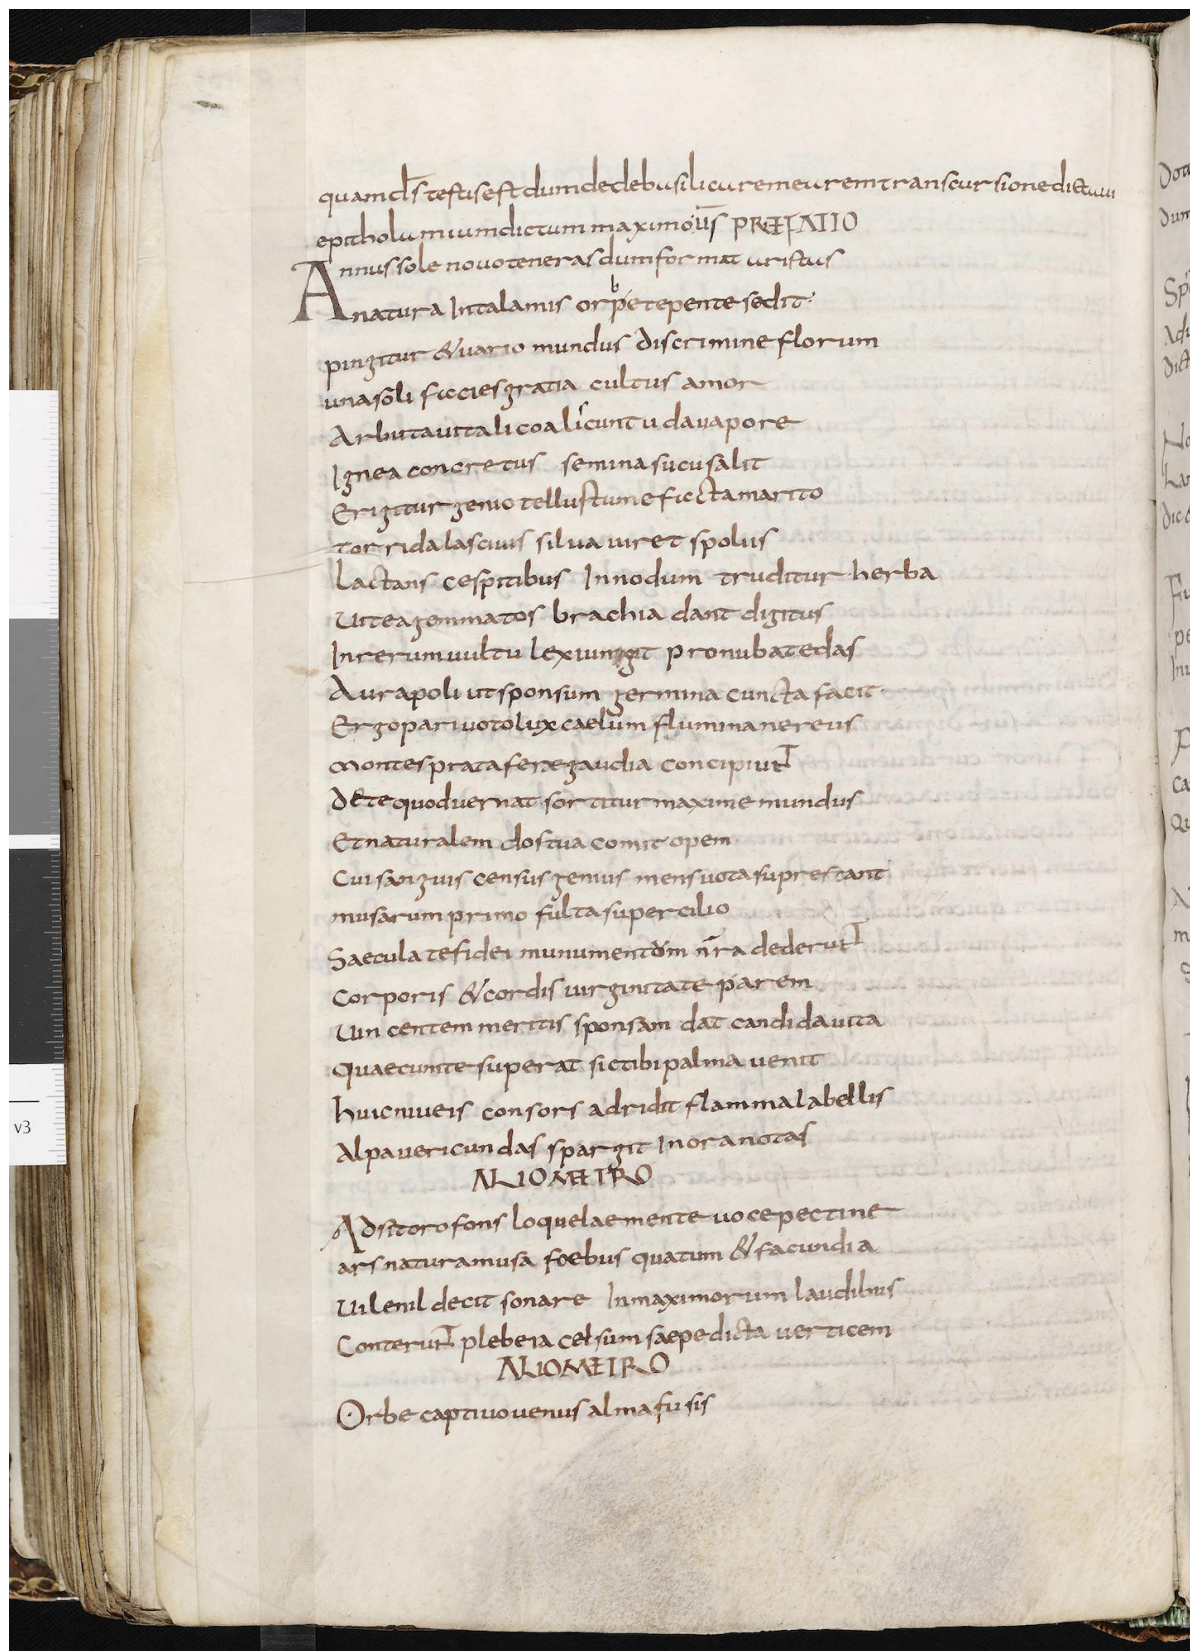 quamds testis est dum dedebusilicuremeurem transcursione dictum
epitholumium dictum maximo ūs PRÆFATIO
Annus sole novo teneras dum format aristas
natura In talamis orpe tepente sedit
pingitur & uario mundus discrimine florum
una soli facies gratia cultus amor
Arbuta uitali coaliscunt udauapore
Ignea concretus semina sucu salit
Erigitur genio tellus tumefacta marito
torrida lascius silua uiret spolus
Lactans cespitibus In nodum truditur herba
Uitea gemmatos brachia dant digitus
In rerum uultu lex iungit pronuba tedas
Aura poli ut sponsum germina cuncta facit
Ergo pari uoto lux caelum flumina nereus
montes prata feræ gaudia concipiuNT
De te quod uernat sortitur maxime mundus
Et naturalem dos tua comit opem
Cui sanguis census genius mens uota suprestant
musarum primo fulta supercilio
Saecula te fidei munumentom nr̄a dederuNT
Corporis & cordis uirginitate parem
Uincentem meritis sponsam dat candida uita
Quae cunte superat sic tibi palma uenit
huic niueis consors adridit flamma labellis
Alpa uericundas spargit In ora notas
ALIO METRO
Adsit oro fons loquelae mente uoce pectine
ars natura musa foebus quatum & facundia
Uilenil decit sonare In maximorum laudibus
ConteruNT plebeia celsum saepe dicta uerticem
ALIO METRO
Orbe captiuo uenus alma fusis